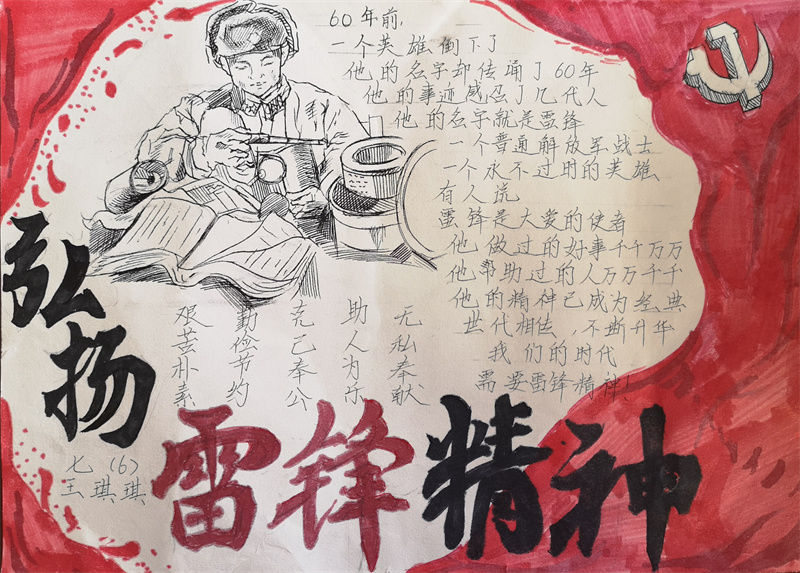 60年前,
一个英雄倒下了
他的名字却传诵了60年
他的事迹感召了几代人
他的名字就是雷锋
一个普通解放军战士
一个永不过时的英雄
有人说
雷锋是大爱的使者
他做过的好事千千万万
他帮助过的人万万千千
他的精神已成为经典
世代相传，不断升华
我们的时代
需要雷锋精神!
艰苦朴素
勤俭节约
克己奉公
助人为乐
无私奉献
弘扬
雷锋精神
七(6)
王琪琪